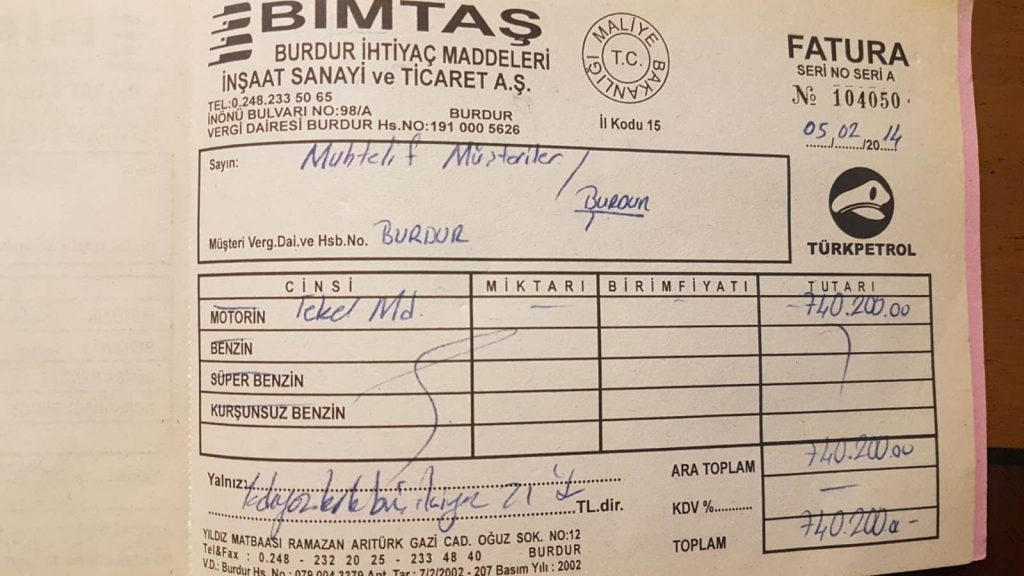 BİMTAŞ
BURDUR İHTİYAÇ MADDELERİ
İNŞAAT SANAYİ ve TİCARET A.Ş.
TEL:0.248.233 50 65
İNÖNÜ BULVARI NO:98/A BURDUR
VERGİ DAİRESİ BURDUR Hs.NO:191 000 5626
MALİYE BAKANLIĞI
T.C.
İl Kodu 15
FATURA
SERİ NO SERİ A
№ 104050
05/02/2014
TÜRKPETROL
Sayın: Muhtelif Müşteriler/
Burdur
Müşteri Verg.Dai.ve Hsb.No. BURDUR
CİNSİ MİKTARI BİRİMFİYATI TUTARI
MOTORİN Tekel Md. — 740.200.00
BENZİN
SÜPER BENZİN
KURŞUNSUZ BENZİN
ARA TOPLAM 740.200.00
Yalnız:
TL.dir.
KDV %.......... —
TOPLAM 740.200
YILDIZ MATBAASI RAMAZAN ARITÜRK GAZİ CAD. OĞUZ SOK. NO:12
Tel&Fax : 0.248 - 232 20 25 - 233 48 40 BURDUR
V.D.: Burdur Hs. No : 079 004 3279 Ant. Tar : 7/2/2002 - 207 Basım Yılı : 2002